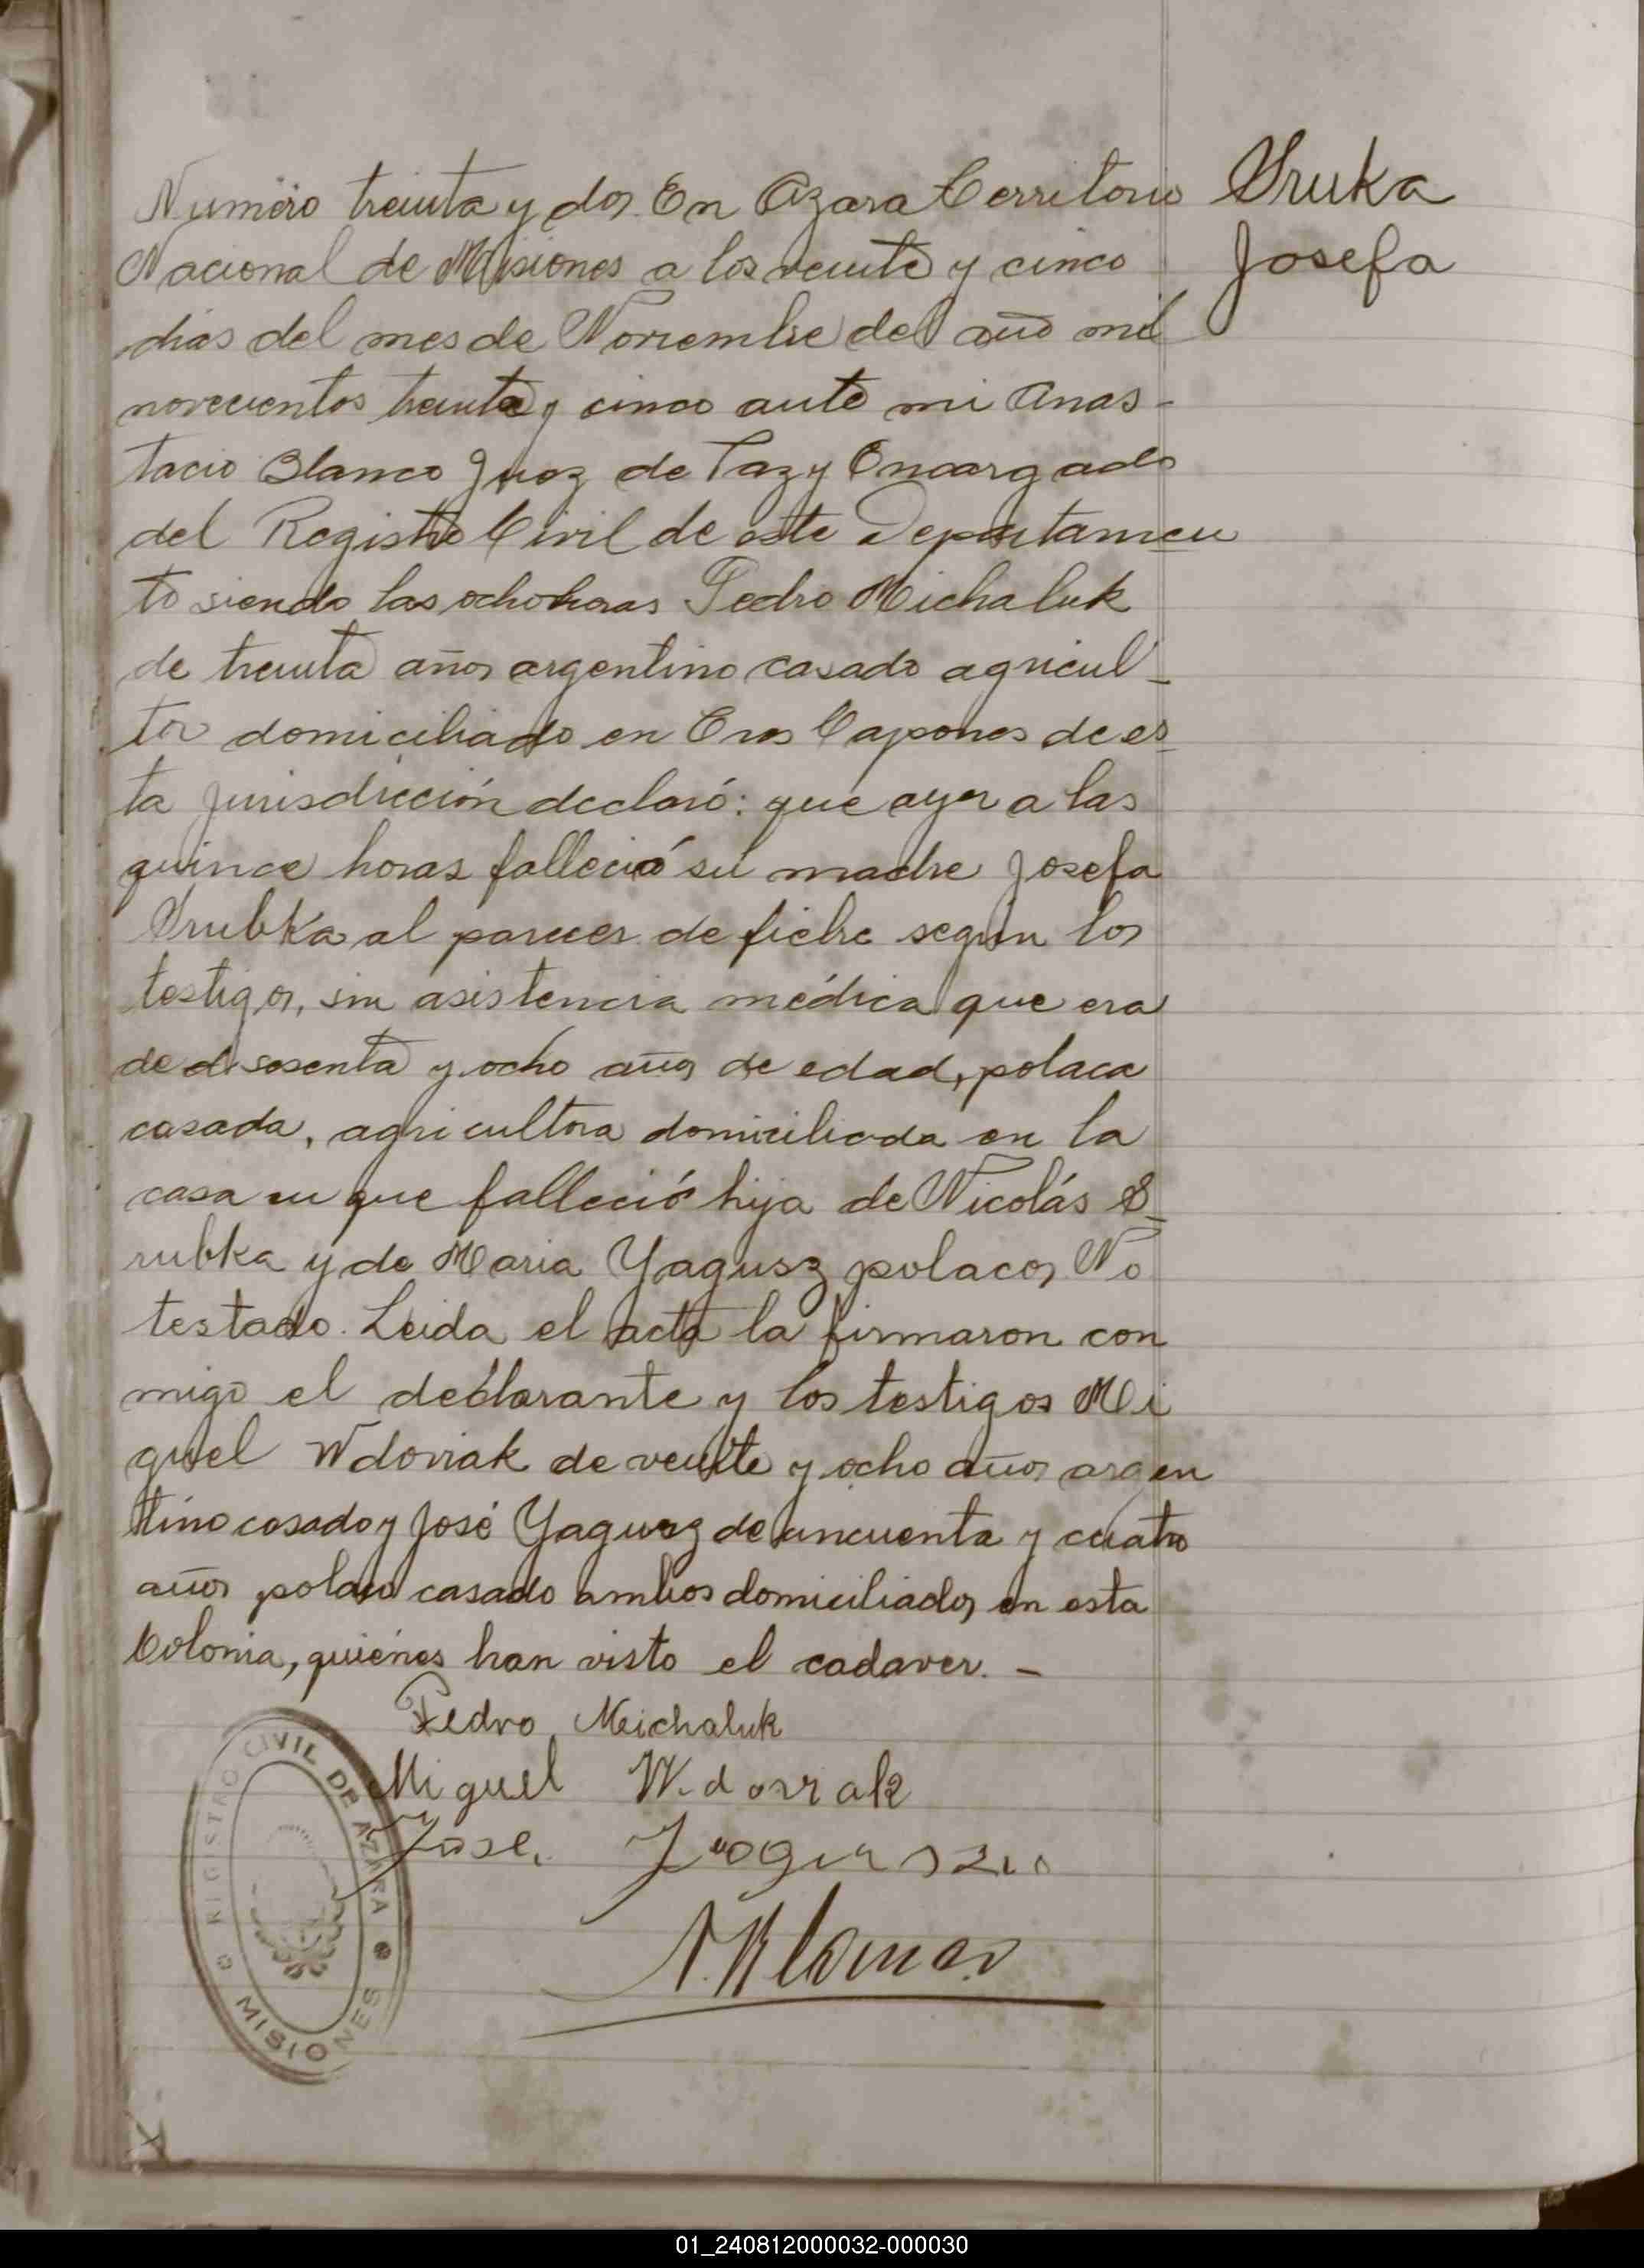 Numero treinta y dos. En Azara Territorio
Nacional de Misiones a los veinte y cinco
dias del mes de Noviembre del año mil
novecientos treinta y cinco ante mi Anas-
tacio Blanco Juez de Paz y Encargado
del Registro Civil de este Departamen
to siendo las ocho horas Pedro Michaluk
de treinta años argentino casado agricul-
tor domiciliado en Tres Capones de es-
ta jurisdicción declaró: que ayer a las
quince horas falleció su madre Josefa
Srubka al parecer de fiebre según los
testigos, sin asistencia médica que era
de sesenta y ocho años de edad, polaca
casada, agricultora domiciliada en la
casa en que falleció hija de Nicolás S-
rubka y de Maria Yagusz polacos No
testado. Leida el acta la firmaron con
migo el declarante y los testigos Mi
guel Wdoviak de veinte y ocho años argen
tino casado y José Yagusz de cincuenta y cuatro
años polaco casado ambos domiciliados en esta
Colonia, quiénes han visto el cadaver. -
Sruka
Josefa
Pedro Michaluk
Miguel Wdoviak
Jose
A. Blanco
REGISTRO CIVIL DE AZARA
MISIONES
01_240812000032-000030